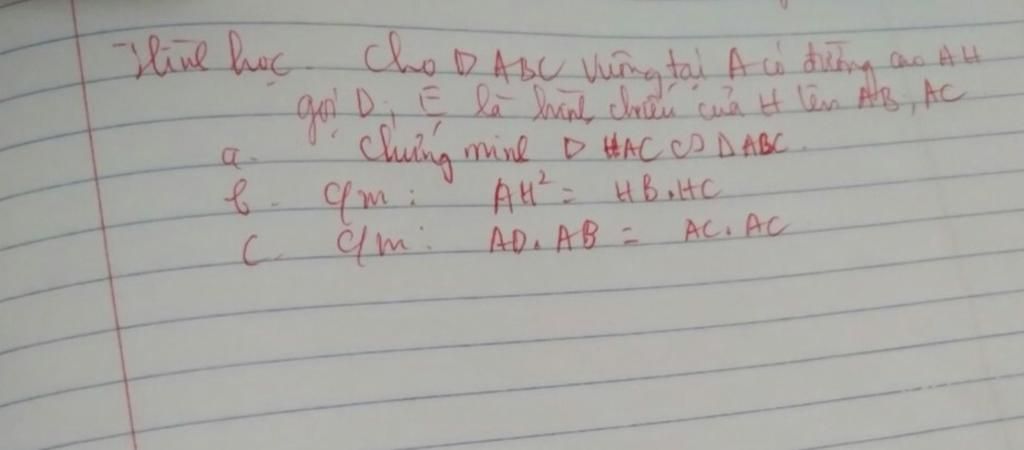 Hình học. Cho Δ ABC vuông tại A có đường cao AH
gọi D, E là hình chiếu của H lên AB, AC
a. Chứng minh Δ HAC ∽ Δ ABC.
b. C/m: AH² = HB.HC
c. C/m: AD.AB = AC.AC